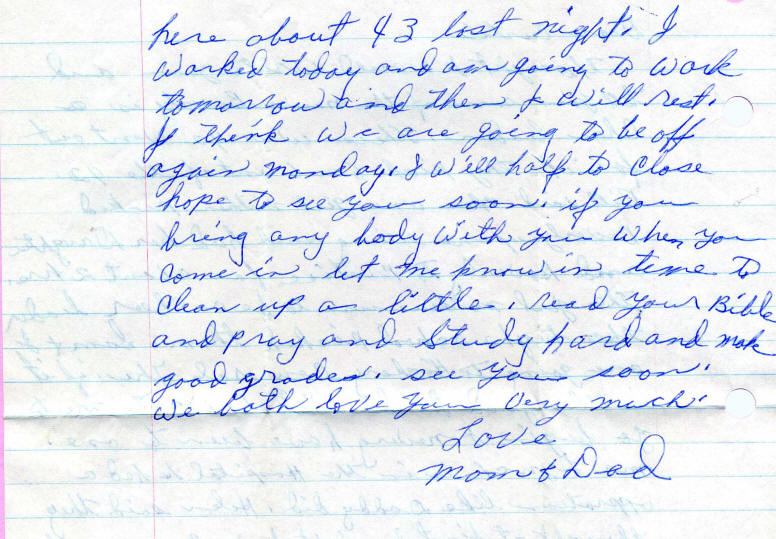 here about 43 last night. I
worked today and am going to work
tomorrow and then I will rest.
I think we are going to be off
again monday. I will half to close
hope to see you soon. if you
bring any body with you when you
come in let me know in time to
clean up a little. read your Bible
and pray and study hard and make
good grades. see you soon.
we both love you very much.
Love
Mom & Dad